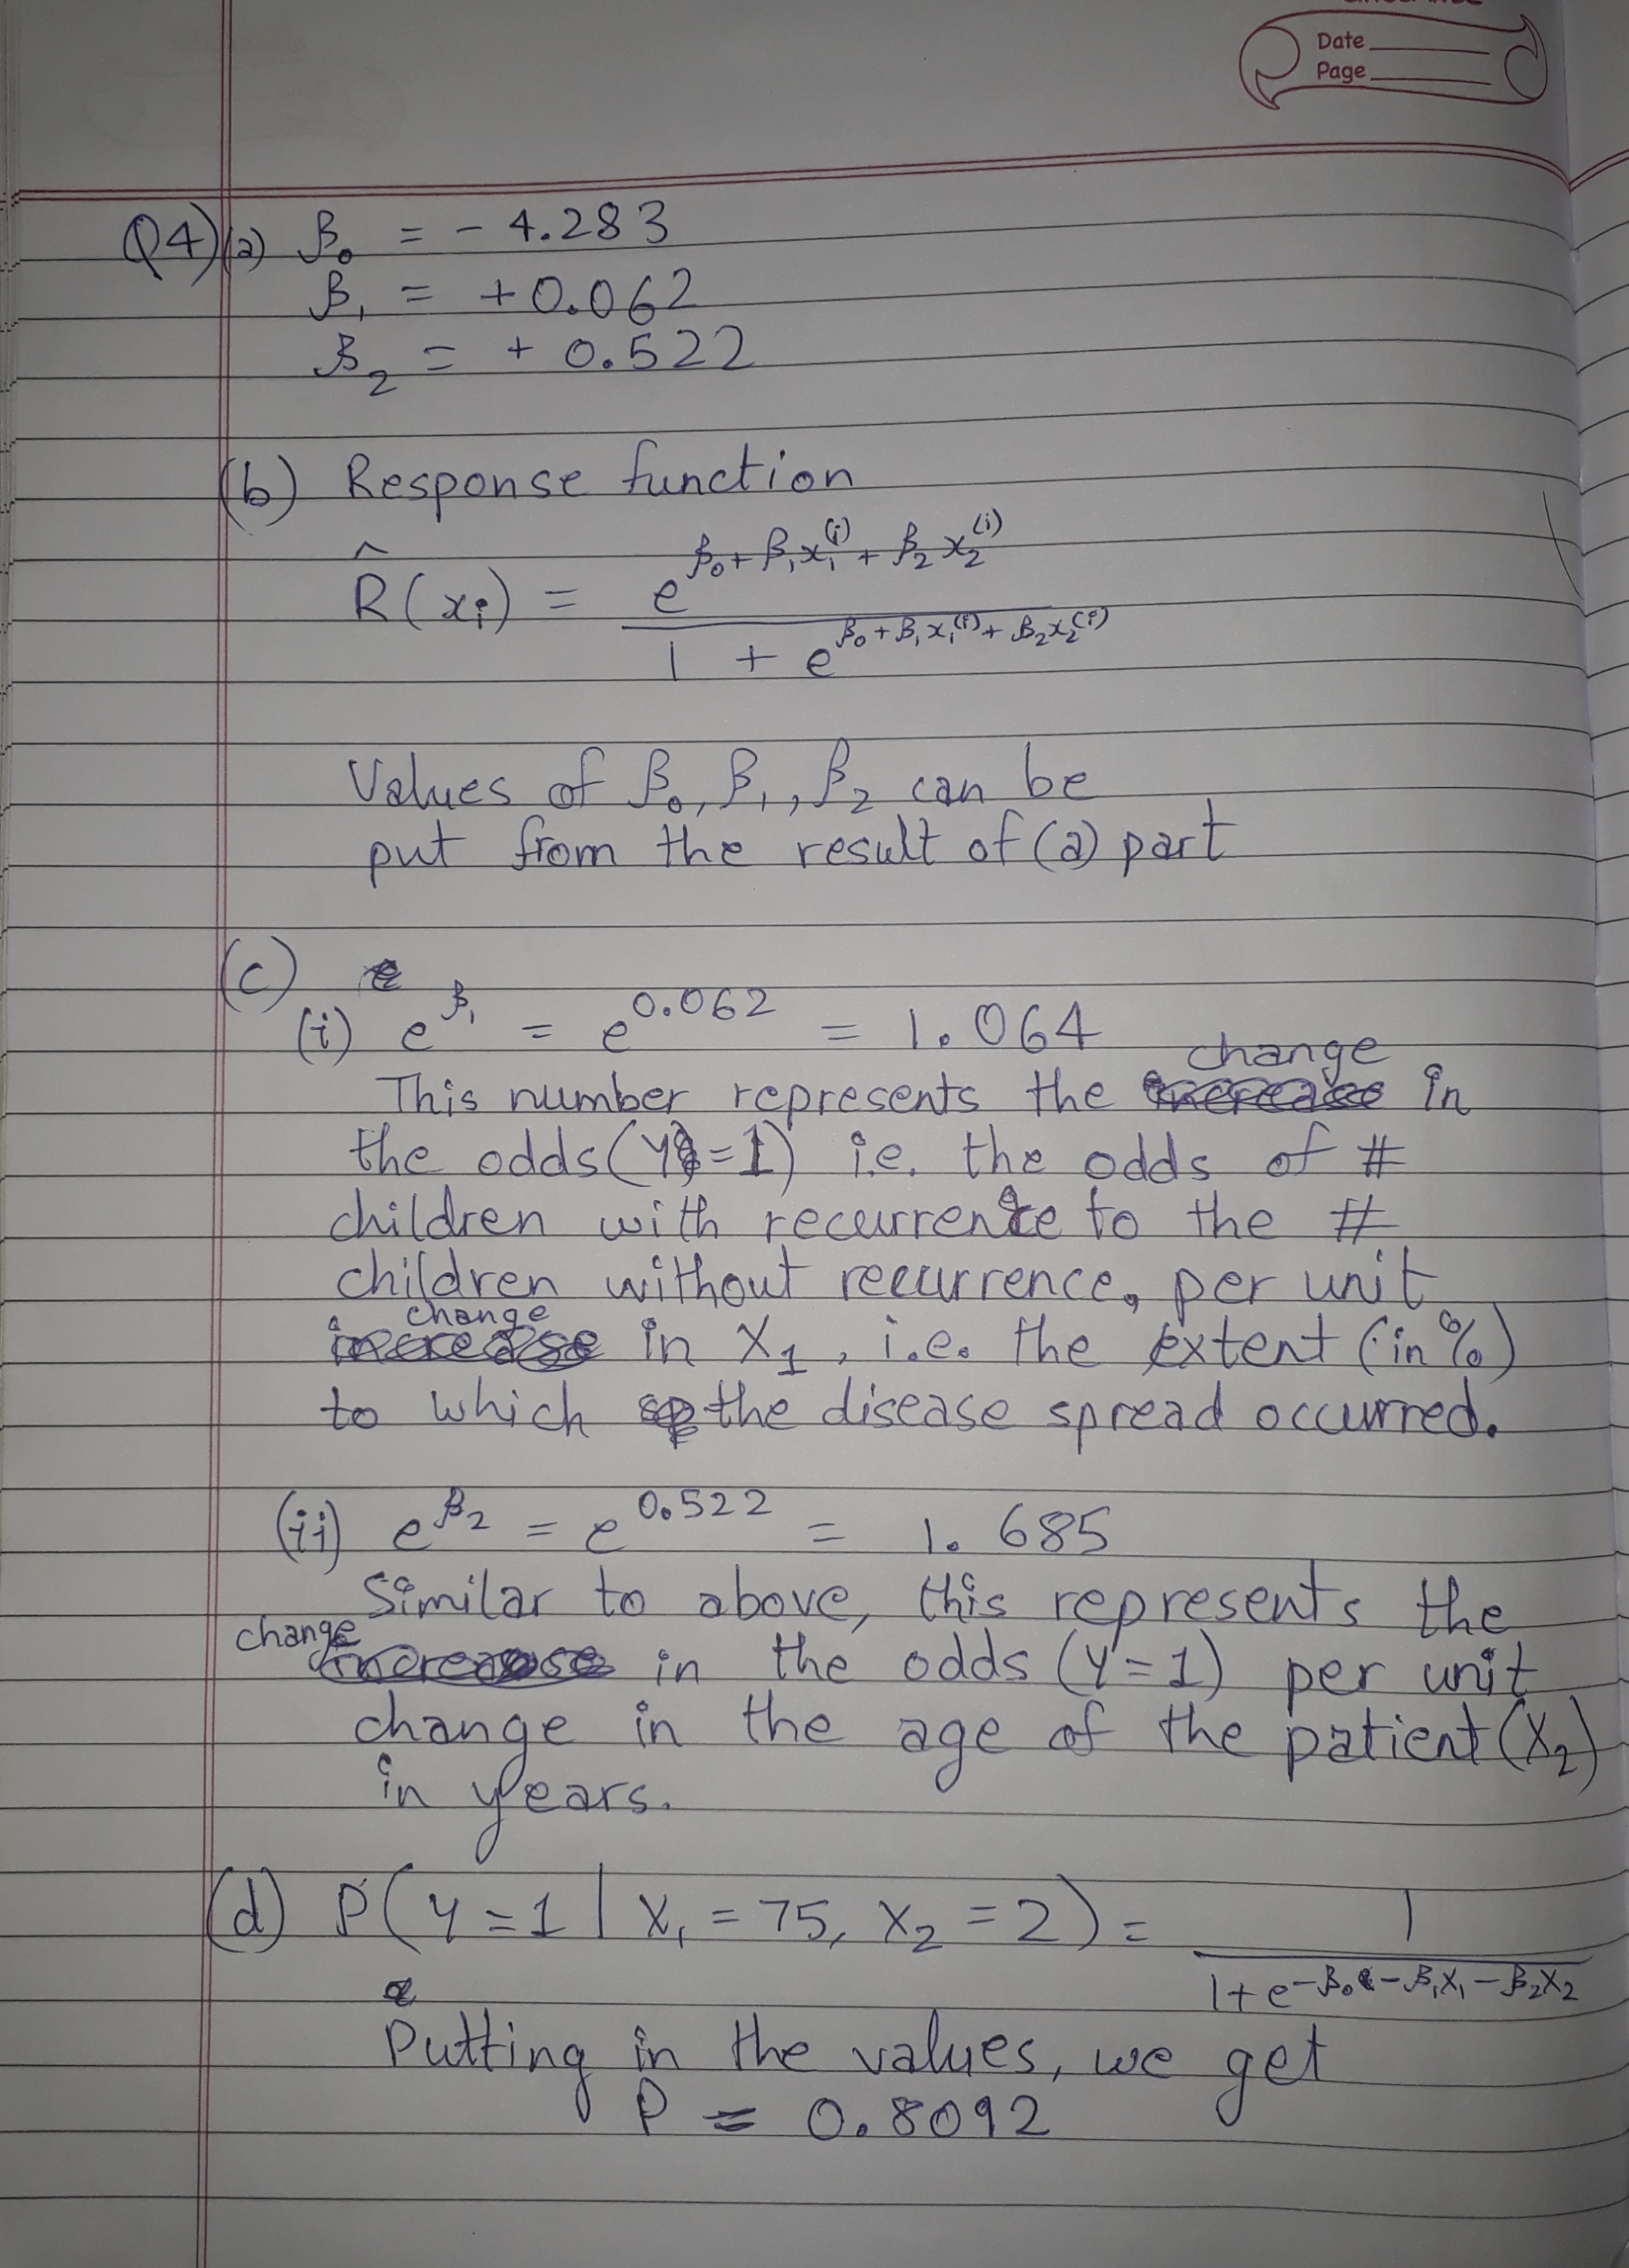 Date
Page
Q4) (a) β₀ = - 4.283
β₁ = +0.062
β₂ = + 0.522
(b) Response function
R̂(xᵢ) = e^(β₀ + β₁x₁^(i) + β₂x₂^(i)) / (1 + e^(β₀ + β₁x₁^(i) + β₂x₂^(i)))
Values of β₀, β₁, β₂ can be
put from the result of (a) part
(c)
(i) e^β₁ = e^0.062 = 1.064
This number represents the change in
the odds (Y=1) i.e. the odds of #
children with recurrence to the #
children without recurrence, per unit
change in X₁, i.e. the extent (in %)
to which the disease spread occurred.
(ii) e^β₂ = e^0.522 = 1.685
Similar to above, this represents the
change in the odds (Y=1) per unit
change in the age of the patient (X₂)
in years.
(d) P(Y=1 | X₁ = 75, X₂ = 2) = 1 / (1+e^(-β₀ - β₁X₁ - β₂X₂))
Putting in the values, we get
P = 0.8092